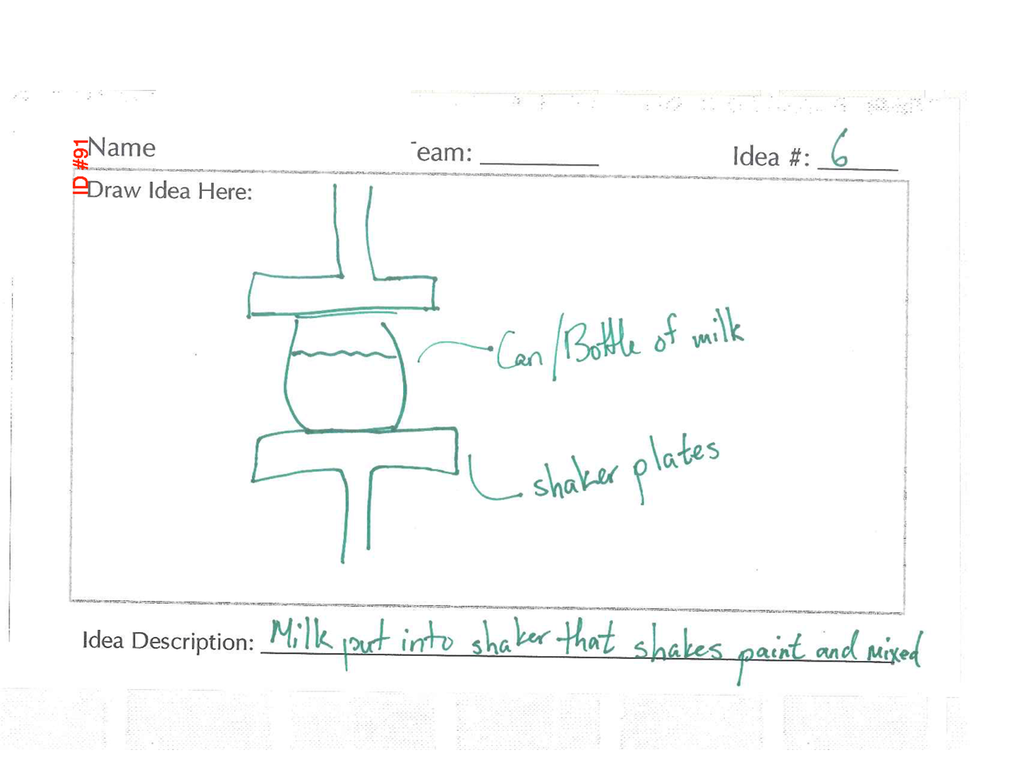 ID #91
Name Team: Idea #: 6
Draw Idea Here:
Can/Bottle of milk
shaker plates
Idea Description: Milk put into shaker that shakes paint and mixed